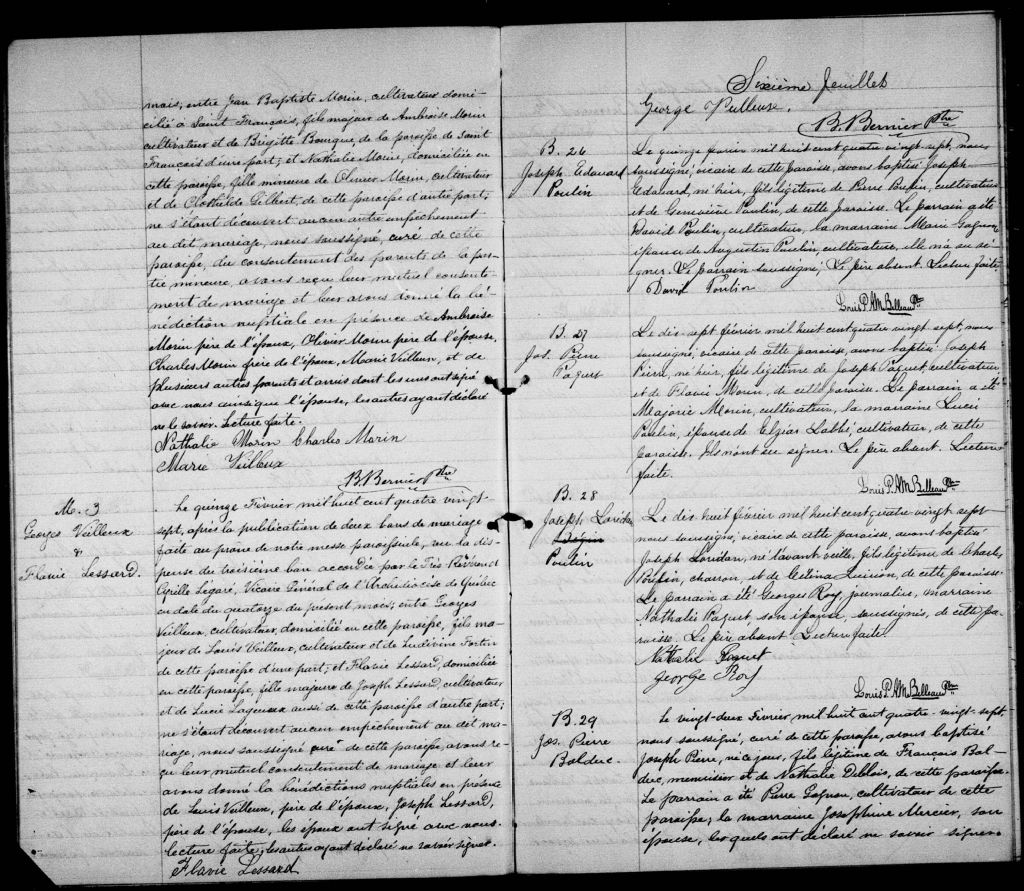 mais; entre Jean Baptiste Morin, cultivateur domi-
cilié à Saint François, fils majeur de Ambroise Morin
cultivateur et de Brigitte Bourque de la paroisse de Saint
François d'une part; et Nathalie Morin, domiciliée en
cette paroisse, fille mineure de Olivier Morin, cultivateur
et de Clothilde Gilbert, de cette paroisse d'autre part;
ne s'étant découvert aucun autre empêchement
au dit mariage, nous soussigné, curé de cette
paroisse, du consentement des parents de la par-
tie mineure, avons reçu leur mutuel consente-
ment de mariage et leur avons donné la bé-
nédiction nuptiale en présence de Ambroise
Morin père de l'époux, Olivier Morin père de l'épouse,
Charles Morin frère de l'époux, Marie Veilleux, et de
plusieurs autres parents et amis dont les uns ont signé
avec nous ainsi que l'épouse, les autres ayant déclaré
ne le savoir. Lecture faite.
Nathalie Morin Charles Morin
Marie Veilleux
B. Bernier Ptre
M. 3
Georges Veilleux
&
Flavie Lessard.
Le quinze Février mil huit cent quatre vingt-
sept, après la publication de deux bans de mariage
faite au prône de notre messe paroissiale, vu la dis-
pense du troisième ban accordée par le Très Révérend
Cyrille Légaré, Vicaire Général de l'Archidiocèse de Québec
en date du quatorze du présent mois; entre Georges
Veilleux, cultivateur, domicilié en cette paroisse, fils ma-
jeur de Louis Veilleux, cultivateur et de Ludivine Fortin
de cette paroisse d'une part; et Flavie Lessard, domiciliée
en cette paroisse, fille majeure de Joseph Lessard, cultivateur
et de Lucie Lagueux aussi de cette paroisse d'autre part;
ne s'étant découvert aucun empêchement au dit ma-
riage, nous soussigné curé de cette paroisse, avons re-
çu leur mutuel consentement de mariage et leur
avons donné la bénédictions nuptiales en présence
de Louis Veilleux, père de l'époux, Joseph Lessard,
père de l'épouse, les époux ont signé avec nous
lecture faite, les autres ayant déclaré ne savoir signer.
Flavie Lessard
Sixième feuillet
George Veilleux.
B. Bernier Ptre
B. 26
Joseph Edouard
Poulin
Le quinze février mil huit cent quatre vingt sept, nous
soussigné, vicaire de cette paroisse, avons baptisé Joseph
Edouard, né hier, fils légitime de Pierre Poulin, cultivateur
et de Geneviève Poulin, de cette paroisse. Le parrain a été
David Poulin, cultivateur, la marraine Marie Gagnon,
épouse de Augustin Poulin, cultivateur, elle n'a su si-
gner. Le parrain soussigné, Le père absent. Lecture faite
David Poulin
Louis P. A M. Belleau Ptre
B. 27
Jos. Pierre
Paquet
Le dix sept février mil huit cent quatre vingt sept, nous
soussigné, vicaire de cette paroisse, avons baptisé Joseph
Pierre, né hier, fils légitime de Joseph Paquet, cultivateur
et de Flavie Morin, de cette paroisse. Le parrain a été
Majorie Morin, cultivateur, la marraine Lucie
Poulin, épouse de Elzéar Labbé, cultivateur, de cette
paroisse. Ils n'ont su signer. Le père absent. Lecture
faite.
Louis P. A M. Belleau Ptre
B. 28
Joseph Loridan
Poulin
Le dix huit février mil huit cent quatre vingt sept
nous soussigné, vicaire de cette paroisse, avons baptisé
Joseph Loridan, né l'avant veille, fils légitime de Charles
Poulin, charron, et de Célina Quirion, de cette paroisse.
Le parrain a été Georges Roy, journalier, marraine
Nathalie Paquet, son épouse, soussignés, de cette pa-
roisse. Le père absent Lecture faite
Nathalie Paquet
George Roy
Louis P. A M. Belleau Ptre
B. 29
Jos. Pierre
Bolduc.
Le vingt-deux Février mil huit cent quatre-vingt-sept,
nous soussigné, curé de cette paroisse, avons baptisé
Joseph Pierre, né ce jour, fils légitime de François Bol-
duc, menuisier et de Nathalie Deblois, de cette paroisse.
Le parrain a été Pierre Gagnon, cultivateur de cette
paroisse; la marraine Josephine Mercier, son
épouse, lesquels ont déclaré ne savoir signer.